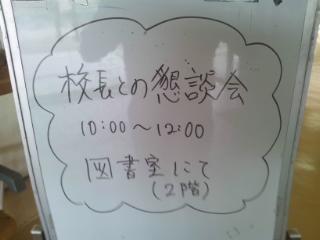 校長との懇談会
10:00〜12:00
図書室にて
(2階)